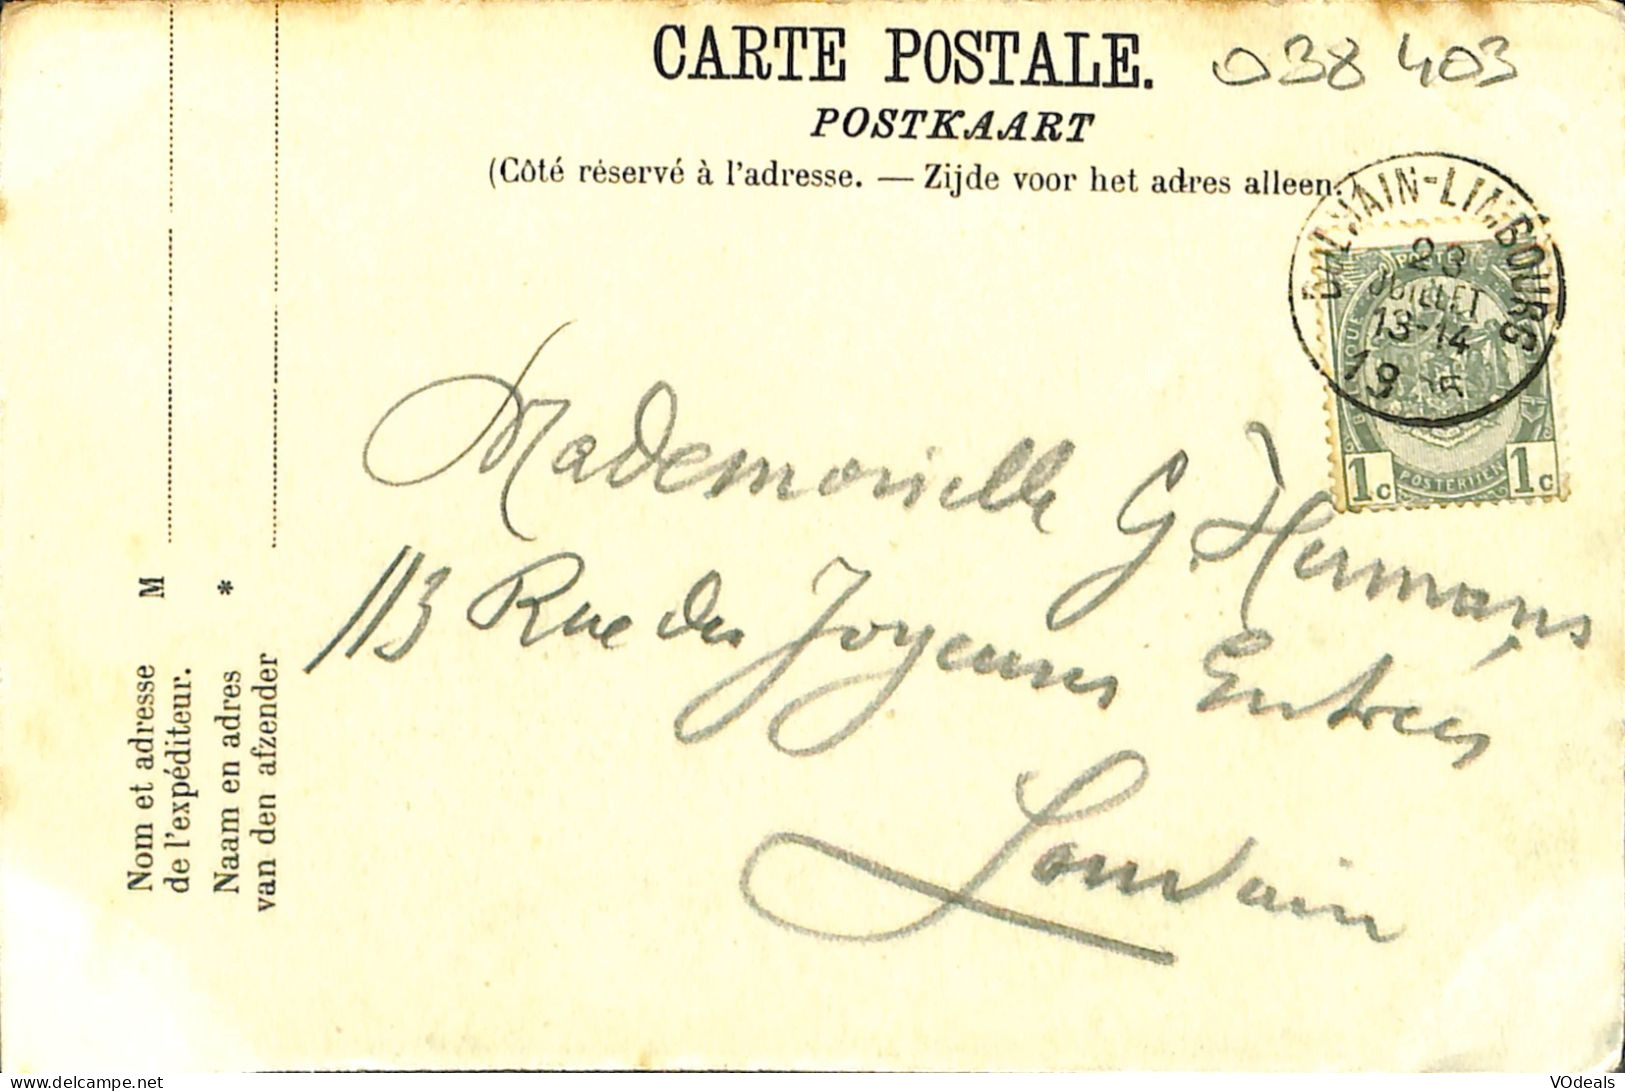 CARTE POSTALE.
038 403
POSTKAART
(Côté réservé à l'adresse. — Zijde voor het adres alleen.
23
JUILLET
13-14
19
POSTERIJEN
1c 1c
Mademoiselle G. Hermans
113 Rue des Joyeuses Entrées
Louvain
M
Nom et adresse
de l'expéditeur.
*
Naam en adres
van den afzender
VOdeals
https://www.delcampe.net/